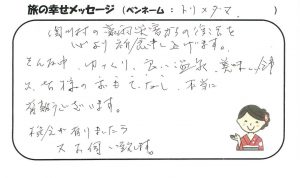 旅の幸せメッセージ（ペンネーム：トリメダマ）
関川村の豪雨災害からの復活を
心より祈念申し上げます。
そんな中、ゆっくり、良い温泉、美味しい食
又皆様のおもてなし、本当に
有難うございます。
機会が有りましたら
又お伺い致します。